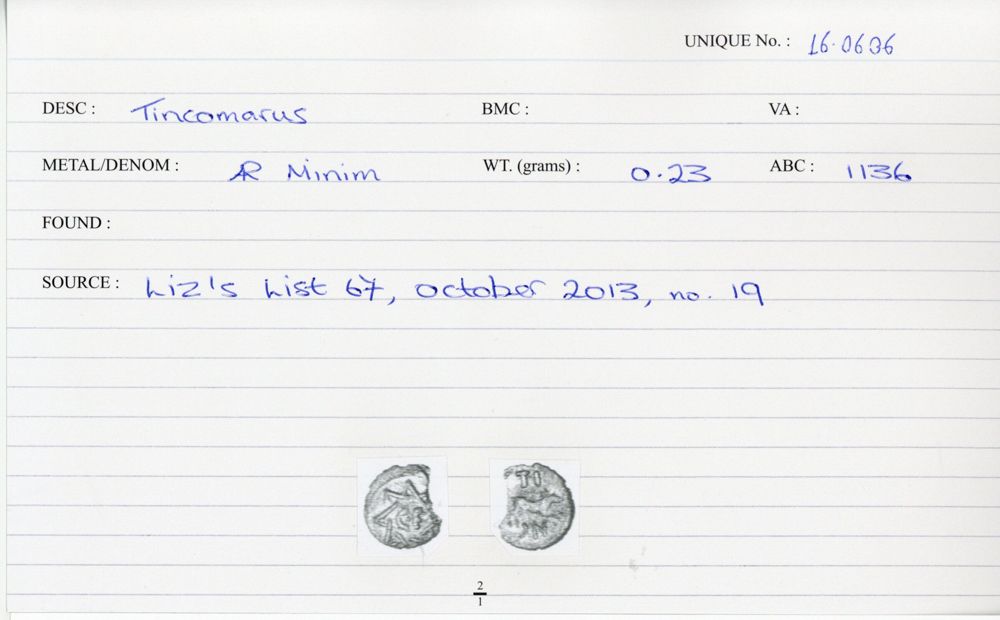 UNIQUE No. : 16.0636
DESC : Tincomarus BMC : VA :
METAL/DENOM : AR Minim WT. (grams) : 0.23 ABC : 1136
FOUND :
SOURCE : Liz's List 67, October 2013, no. 19
TI
2
1